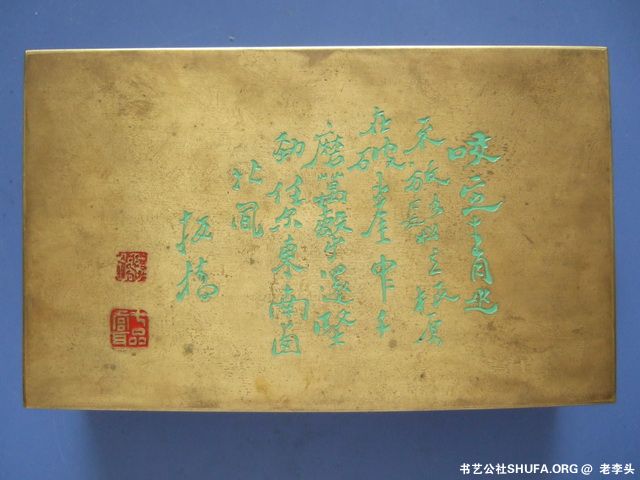 咬定青山
不放鬆立根原
在破崖中千
磨萬擊還堅
勁任尔東南西
北風
板橋
七品官耳
书艺公社SHUFA.ORG @ 老李头